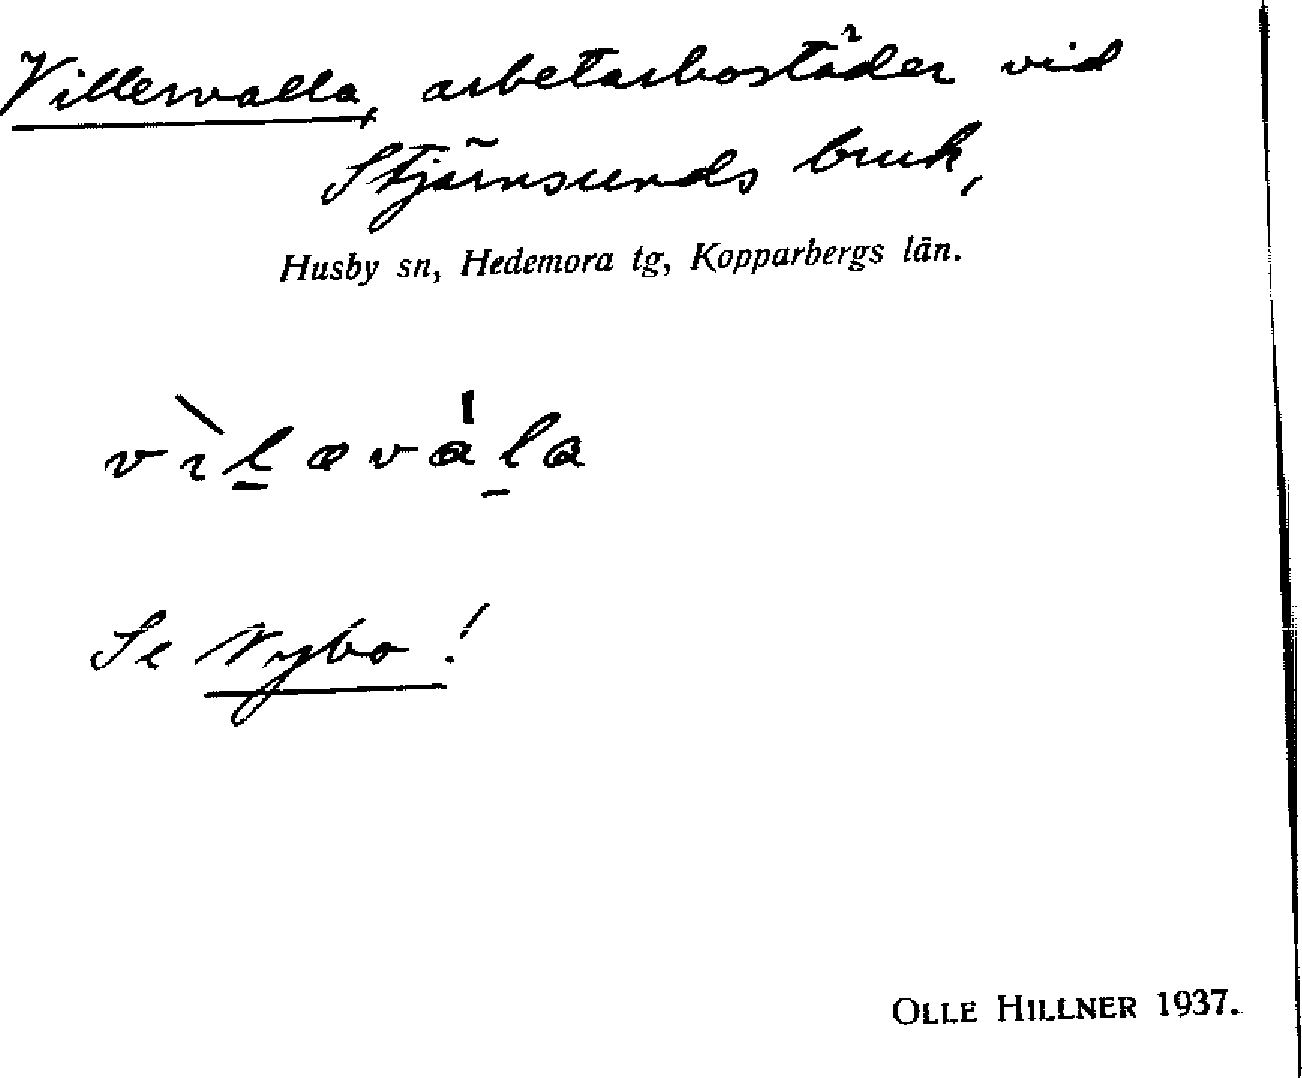 Villervalla, arbetarbostäder vid
Stjärnsunds bruk,
Husby sn, Hedemora tg, Kopparbergs län.
vìl̠əvàl̠a
Se Nybo!
OLLE HILLNER 1937.